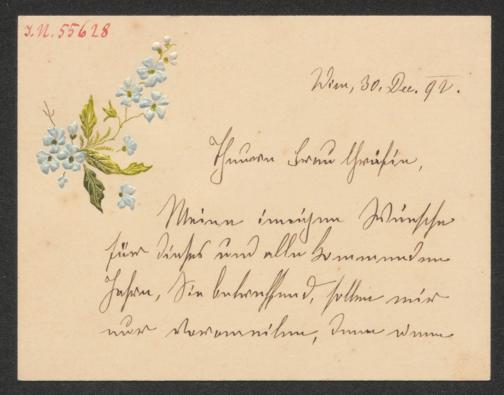 I.N. 55628
Wien, 30. Dec. 92.
Theuere Frau Gräfin,
Meine innigen Wünsche
für dieses und alle kommenden
Jahre, Sie betreffend, sollen mir
nur denn wenn